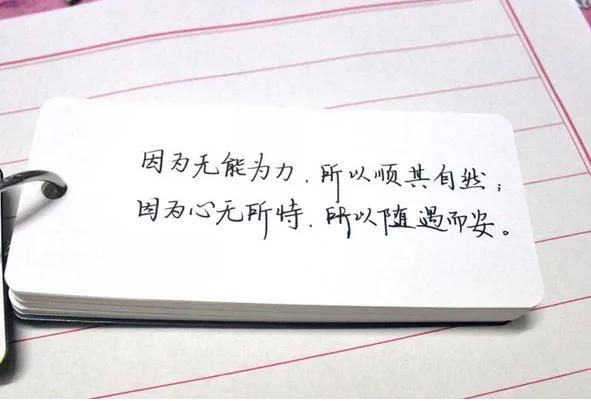 因为无能为力,所以顺其自然;
因为心无所恃,所以随遇而安。